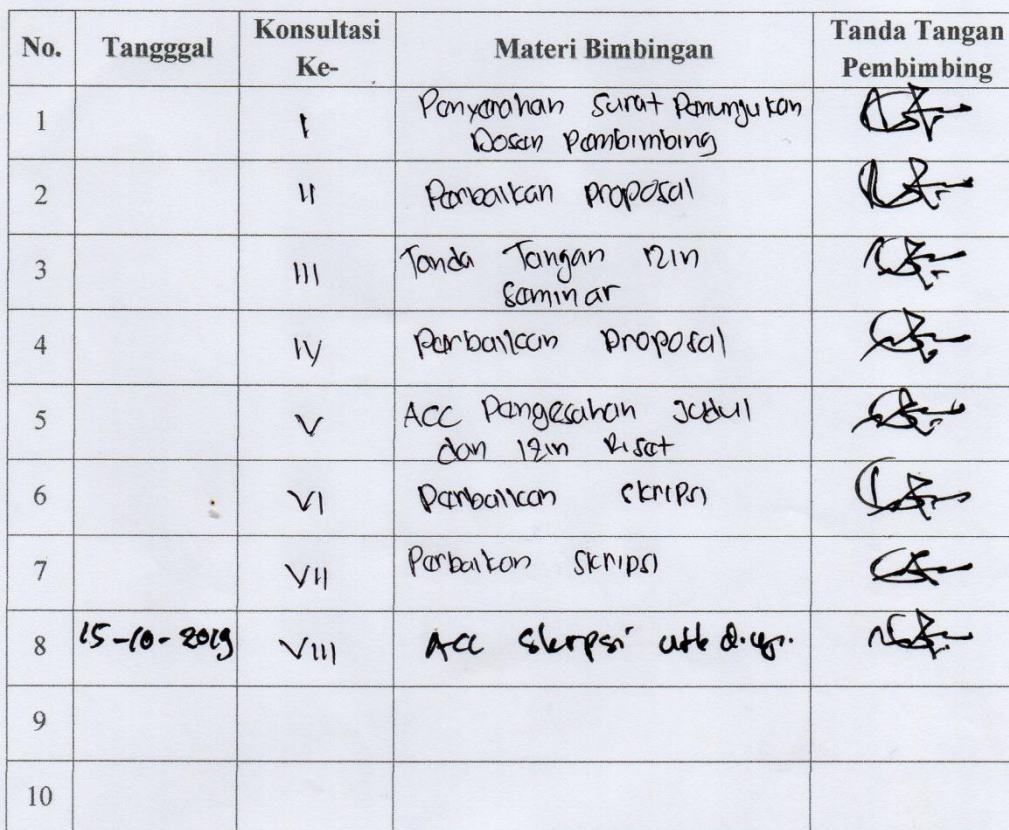 No. Tangggal Konsultasi Ke- Materi Bimbingan Tanda Tangan Pembimbing
1 I Penyerahan Surat Penunjukan
Dosen Pembimbing
2 II Perbaikan proposal
3 III Tanda Tangan izin
Seminar
4 IV Perbaikan Proposal
5 V ACC Pengesahan Judul
dan Izin Riset
6 VI Perbaikan Skripsi
7 VII Perbaikan Skripsi
8 15-10-2019 VIII Acc Skripsi utk
9
10